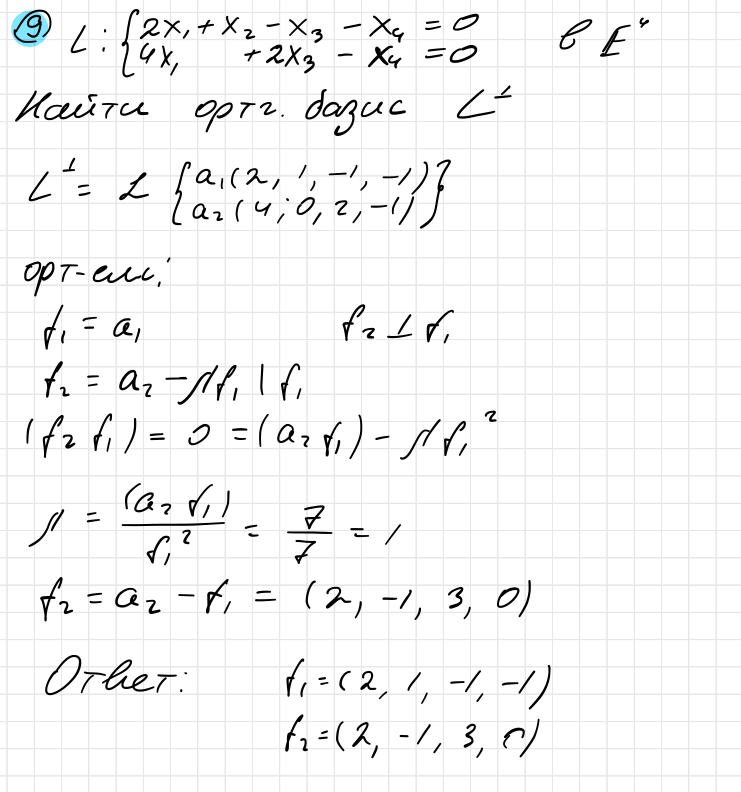 9 L: { 2x₁ + x₂ - x₃ - x₄ = 0 в E⁴
4x₁ + 2x₃ - x₄ = 0
Найти ортг. базис L^⊥
L^⊥ = L { a₁(2, 1, -1, -1)
a₂(4; 0, 2, -1) }
орт-ем:
f₁ = a₁ f₂ ⊥ f₁
f₂ = a₂ - λf₁ | f₁
(f₂ f₁) = 0 = (a₂ f₁) - λf₁²
λ = (a₂ f₁) / f₁² = 7/7 = 1
f₂ = a₂ - f₁ = (2, -1, 3, 0)
Ответ: f₁ = (2, 1, -1, -1)
f₂ = (2, -1, 3, 0)